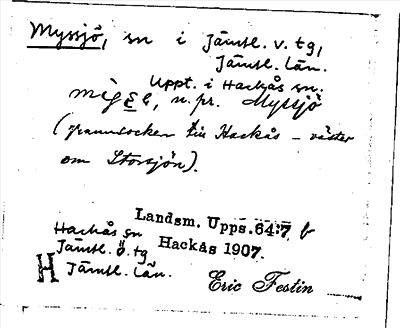 Myssjö, sn i Jämtl. v. tg,
Jämtl. län.
Uppt. i Hackås sn.
n. pr. Myssjö
(grannsocken till Hackås – väster
om Storsjön).
Landsm. Upps. 64:7 b
Hackås sn
Hackås 1907.
Jämtl. ö. tg
H Jämtl. län.
Eric Festin